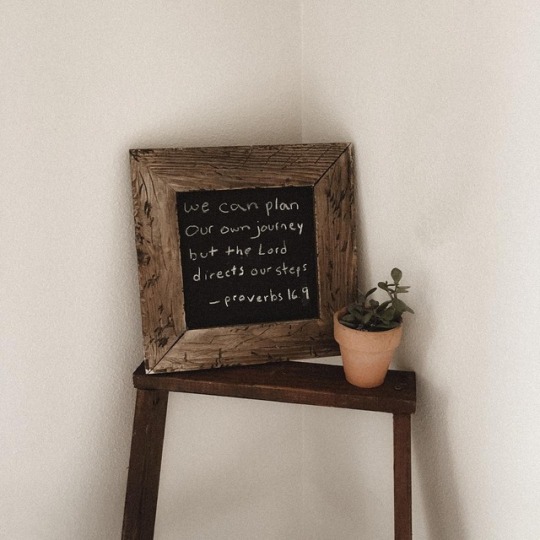 we can plan
Our own journey
but the Lord
directs our steps
– proverbs 16.9